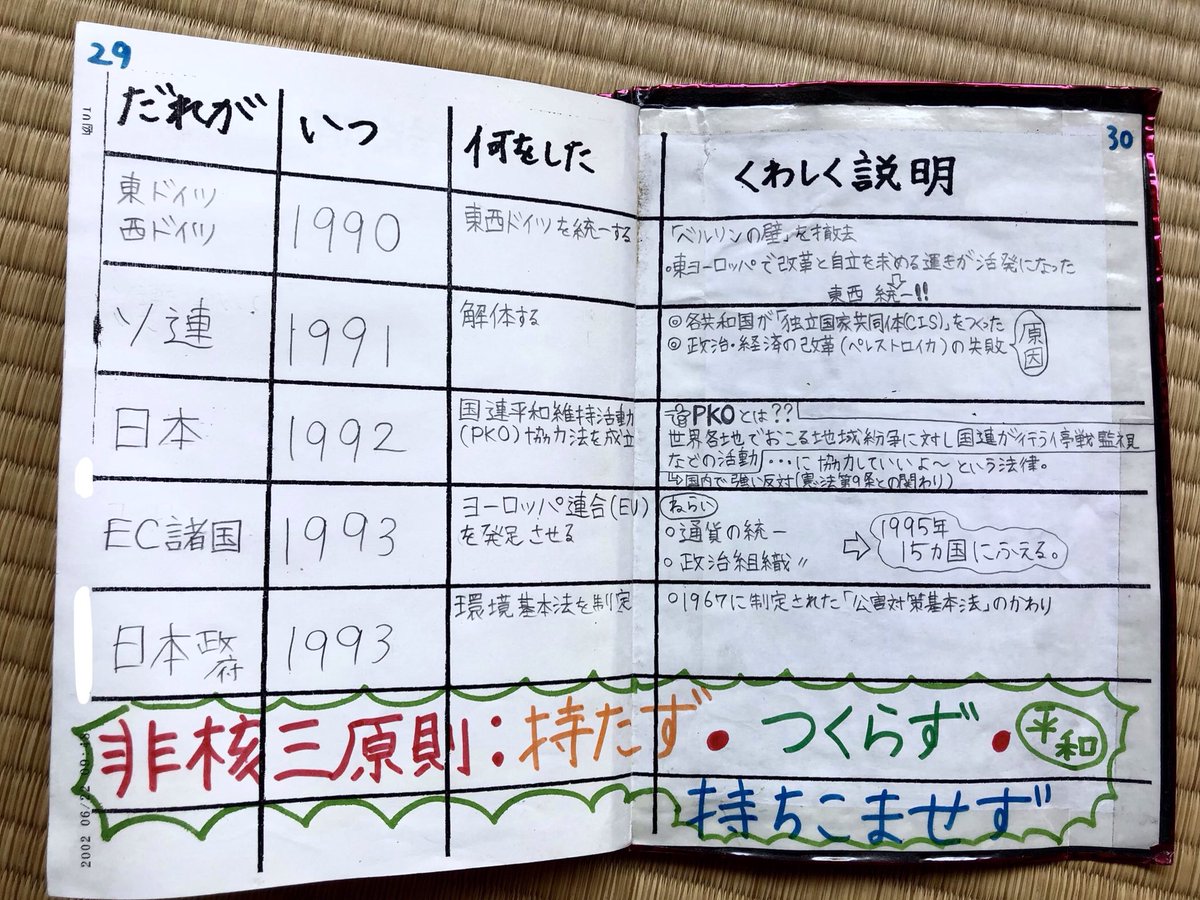 29
だれが いつ 何をした
東ドイツ
西ドイツ
1990
東西ドイツを統一する
ソ連
1991
解体する
日本
1992
国連平和維持活動
(PKO)協力法を成立
EC諸国
1993
ヨーロッパ連合(EU)
を発足させる
日本政府
1993
環境基本法を制定
30
くわしく説明
「ベルリンの壁」を撤去
・東ヨーロッパで改革と自立を求める運きが活発になった
⇩
東西 統一!!
◎各共和国が「独立国家共同体(CIS)」をつくった
◎政治・経済の改革(ペレストロイカ)の失敗
原因
PKOとは??
世界各地でおこる地域紛争に対し国連が行う停戦監視
などの活動…に協力していいよ〜という法律。
↳国内で強い反対(憲法第9条との関わり)
ねらい
○通貨の統一
○政治組織〃
⇨
1995年
15ヵ国にふえる。
○1967に制定された「公害対策基本法」のかわり
非核三原則:持たず・つくらず・平和
持ちこませず